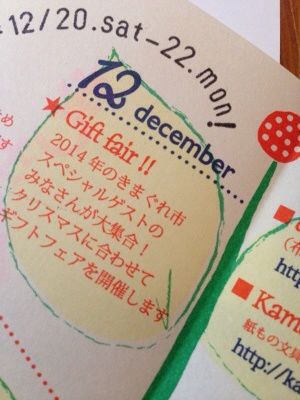 12/20.sat-22.mon!
12 december
★Gift fair!!
2014年のきまぐれ市
スペシャルゲストの
みなさんが大集合！
クリスマスに合わせて
ギフトフェアを開催します
http
■Kam
紙もの文具
http://ka